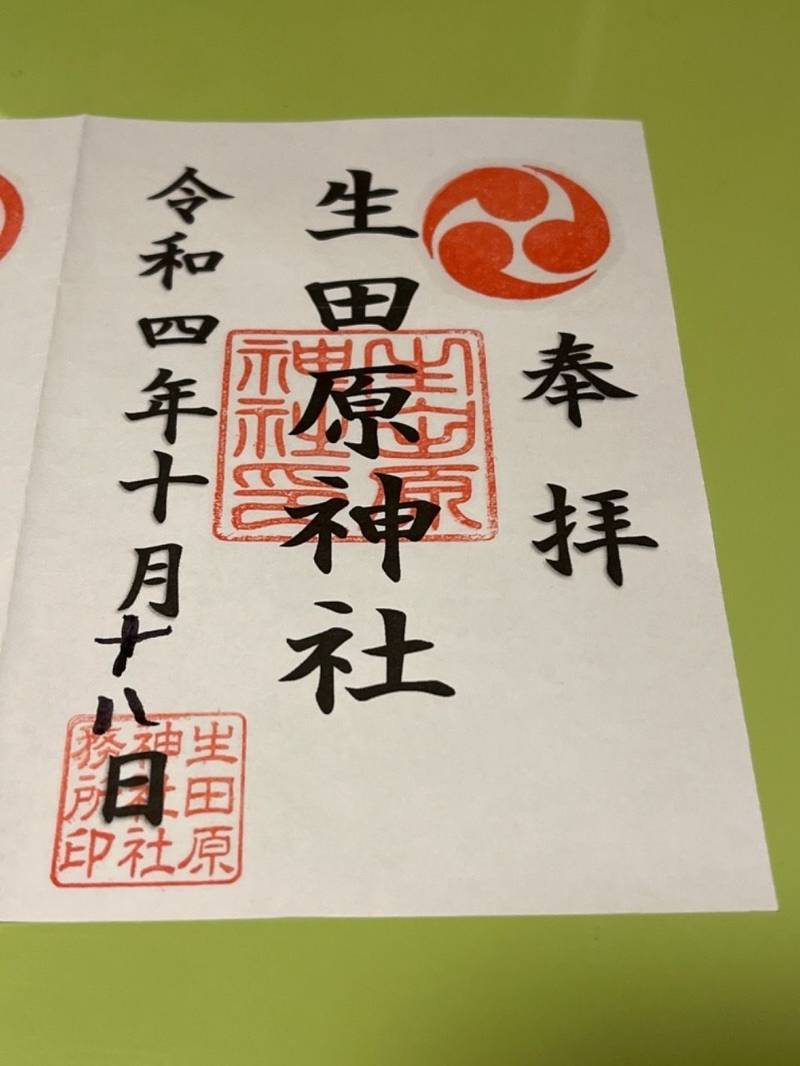 奉拝
生田原神社
生田原
神社印
令和四年十月十八日
生田原
神社社
務所印